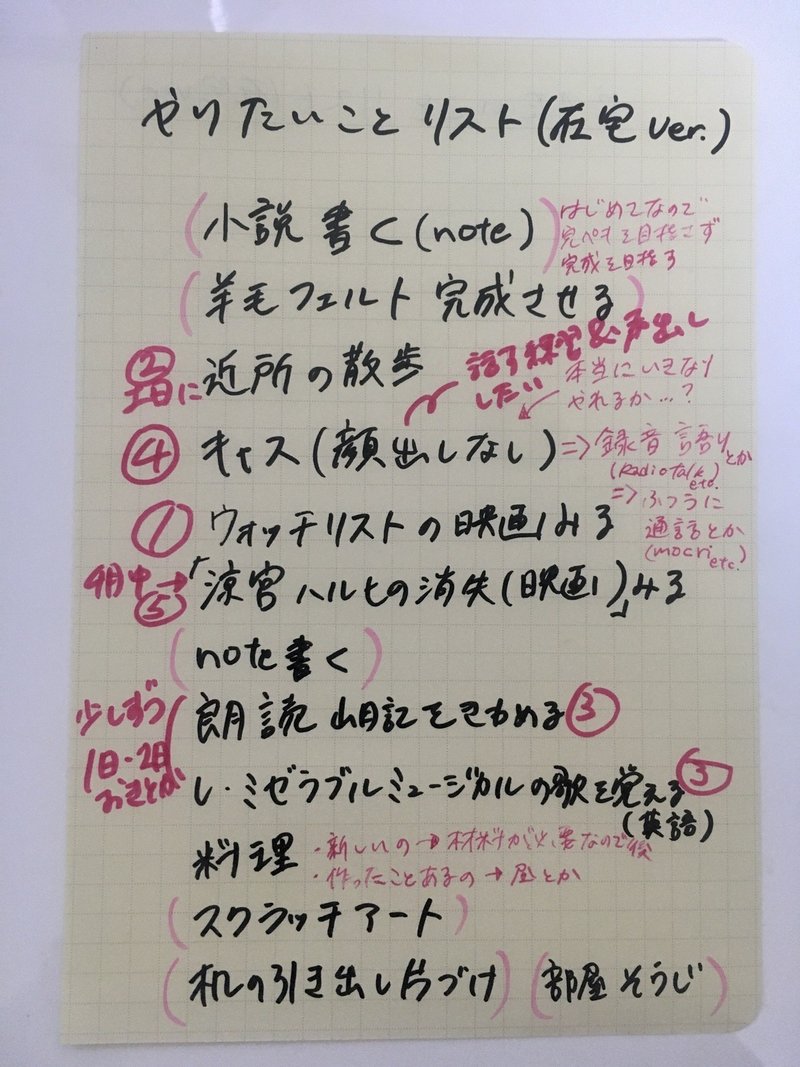 やりたいことリスト(在宅ver.)
(小説書く(note))
はじめてなので
完ペキを目指さず
完成を目指す
(羊毛フェルト完成させる)
② 近所の散歩
土日に
話す練習及び声出し
したい
本当にいきなり
やれるか…?
④ キャス(顔出しなし)
⇒録音 語りとか
(Radiotalk etc.)
⇒ふつうに
通話とか
(mocri etc.)
① ウォッチリストの映画みる
4月中→⑤「涼宮ハルヒの消失(映画)」みる
(note書く)
少しずつ
1日・2日
おきとか
朗読 山月記をきわめる③
レ・ミゼラブルミュージカルの歌を覚える③
(英語)
料理
・新しいの→材料が必要なので後
・作ったことあるの→昼とか
(スクラッチアート)
(机の引き出し片づけ)(部屋そうじ)